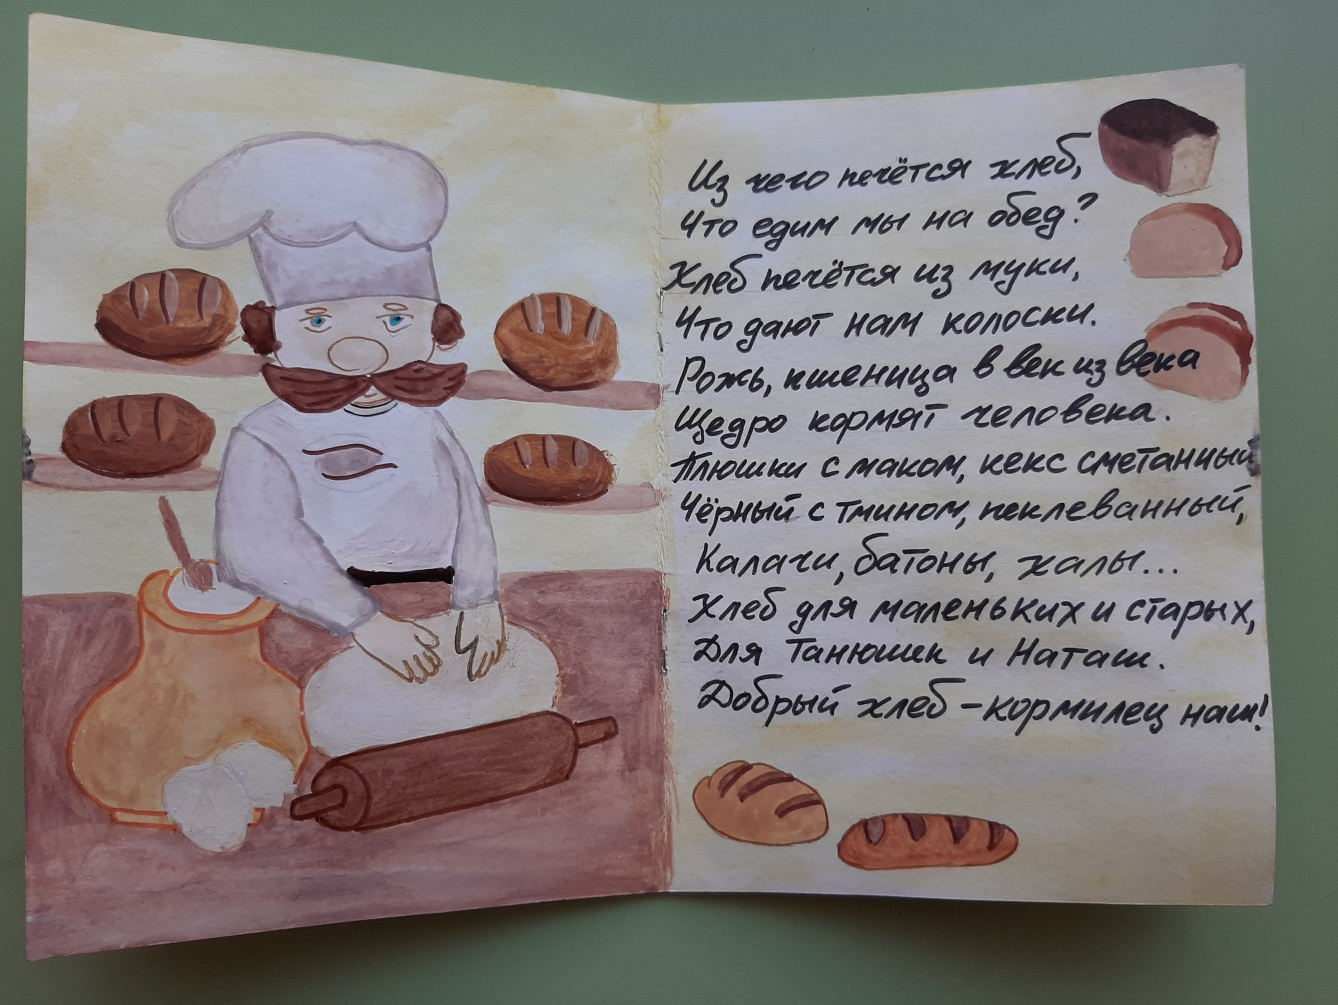 Из чего печётся хлеб,
Что едим мы на обед?
Хлеб печётся из муки,
Что дают нам колоски.
Рожь, пшеница в век из века
Щедро кормят человека.
Плюшки с маком, кекс сметанный
Чёрный с тмином, пеклеванный,
Калачи, батоны, халы...
Хлеб для маленьких и старых,
Для Танюшек и Наташ.
Добрый хлеб - кормилец наш!